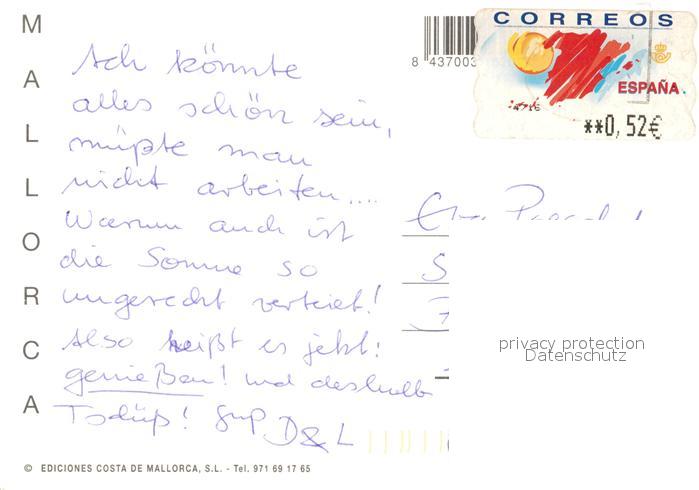 MALLORCA
Ach könnte
alles schön sein,
müßte man
nicht arbeiten....
Warum auch ist
die Sonne so
ungerecht verteilt!
Also heißt es jetzt:
genießen! und deshalb
Tschüß! Grup D&L
8 437003
CORREOS
ESPAÑA
**0,52€
privacy protection
Datenschutz
© EDICIONES COSTA DE MALLORCA, S.L. - Tel. 971 69 17 65